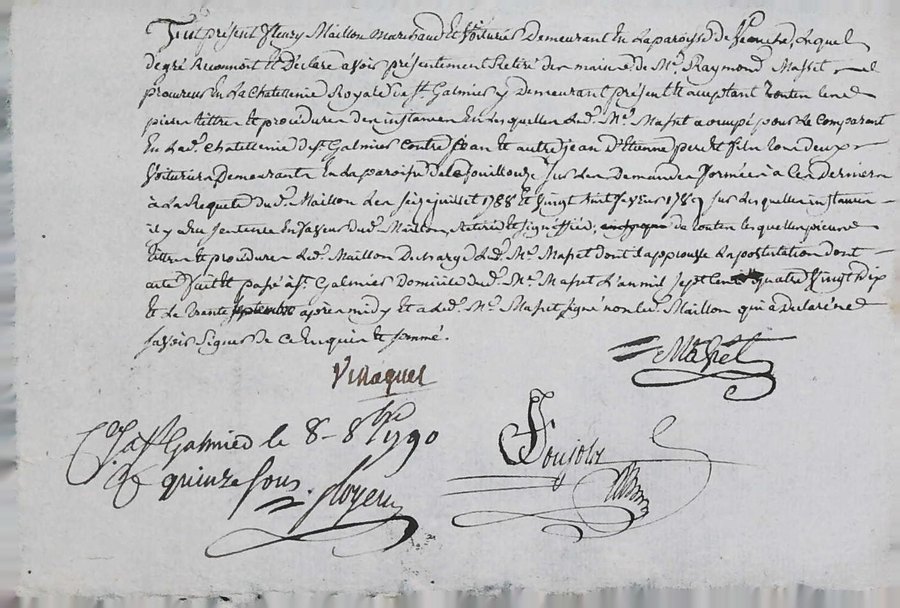 Fut présent Fleury Maillon Marchand et Voiturier Demeurant En La paroisse de Lequel
de gré Reconnoit Et Declare avoir présentement Retiré des mains de Me. Raymond Masset
procureur En La Chatellenie Royale de st. Galmier y Demeurant présent Et acceptant toutes Les
pieces titres Et procédures des instances En Lesquelles Led. Me. Masset a occupé pour Le Comparant
En Lad. Chatellenie de st. Galmier Contre Jean Et autre Jean D'Etienne pere Et fils tous deux
Voituriers Demeurants En La paroisse de Sur Les Demandes formées à Ces Derniers
à La Requete dud. Maillon Les seize juillet 1788 Et vingt huit fevrier 1789 sur Lesquelles instances
il y a Eu sentence En faveur dud. Maillon, Retirée Et signiffiée, de toutes Lesquelles pieces
titres Et procédures Led. Maillon Decharge Led. Me. Masset dont il approuve La postulation dont
acte fait Et passé à st. Galmier Domicile dud. Me. Masset L'an mil sept Cent quatre Vingt Dix
Et Le trente septembre après midy Et a Led. Me. Masset signé non Led. Maillon qui a Declaré ne
savoir Signer de Ce Enquis Et sommé.
Masset
Ct. a st Galmier le 8 - 8bre 1790
R quinze sous.